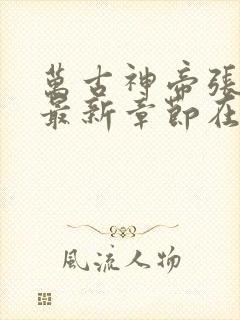 萬古神帝張
最新章節在
風流人物